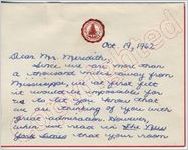 Oct 19, 1962
Dear Mr. Meredith,
Since we are more than
a thousand miles away from
Mississippi, we at first felt
it would be impossible for
us to let you know that
we are thinking of you with
great admiration. However,
when we read in The New
York Times that your room